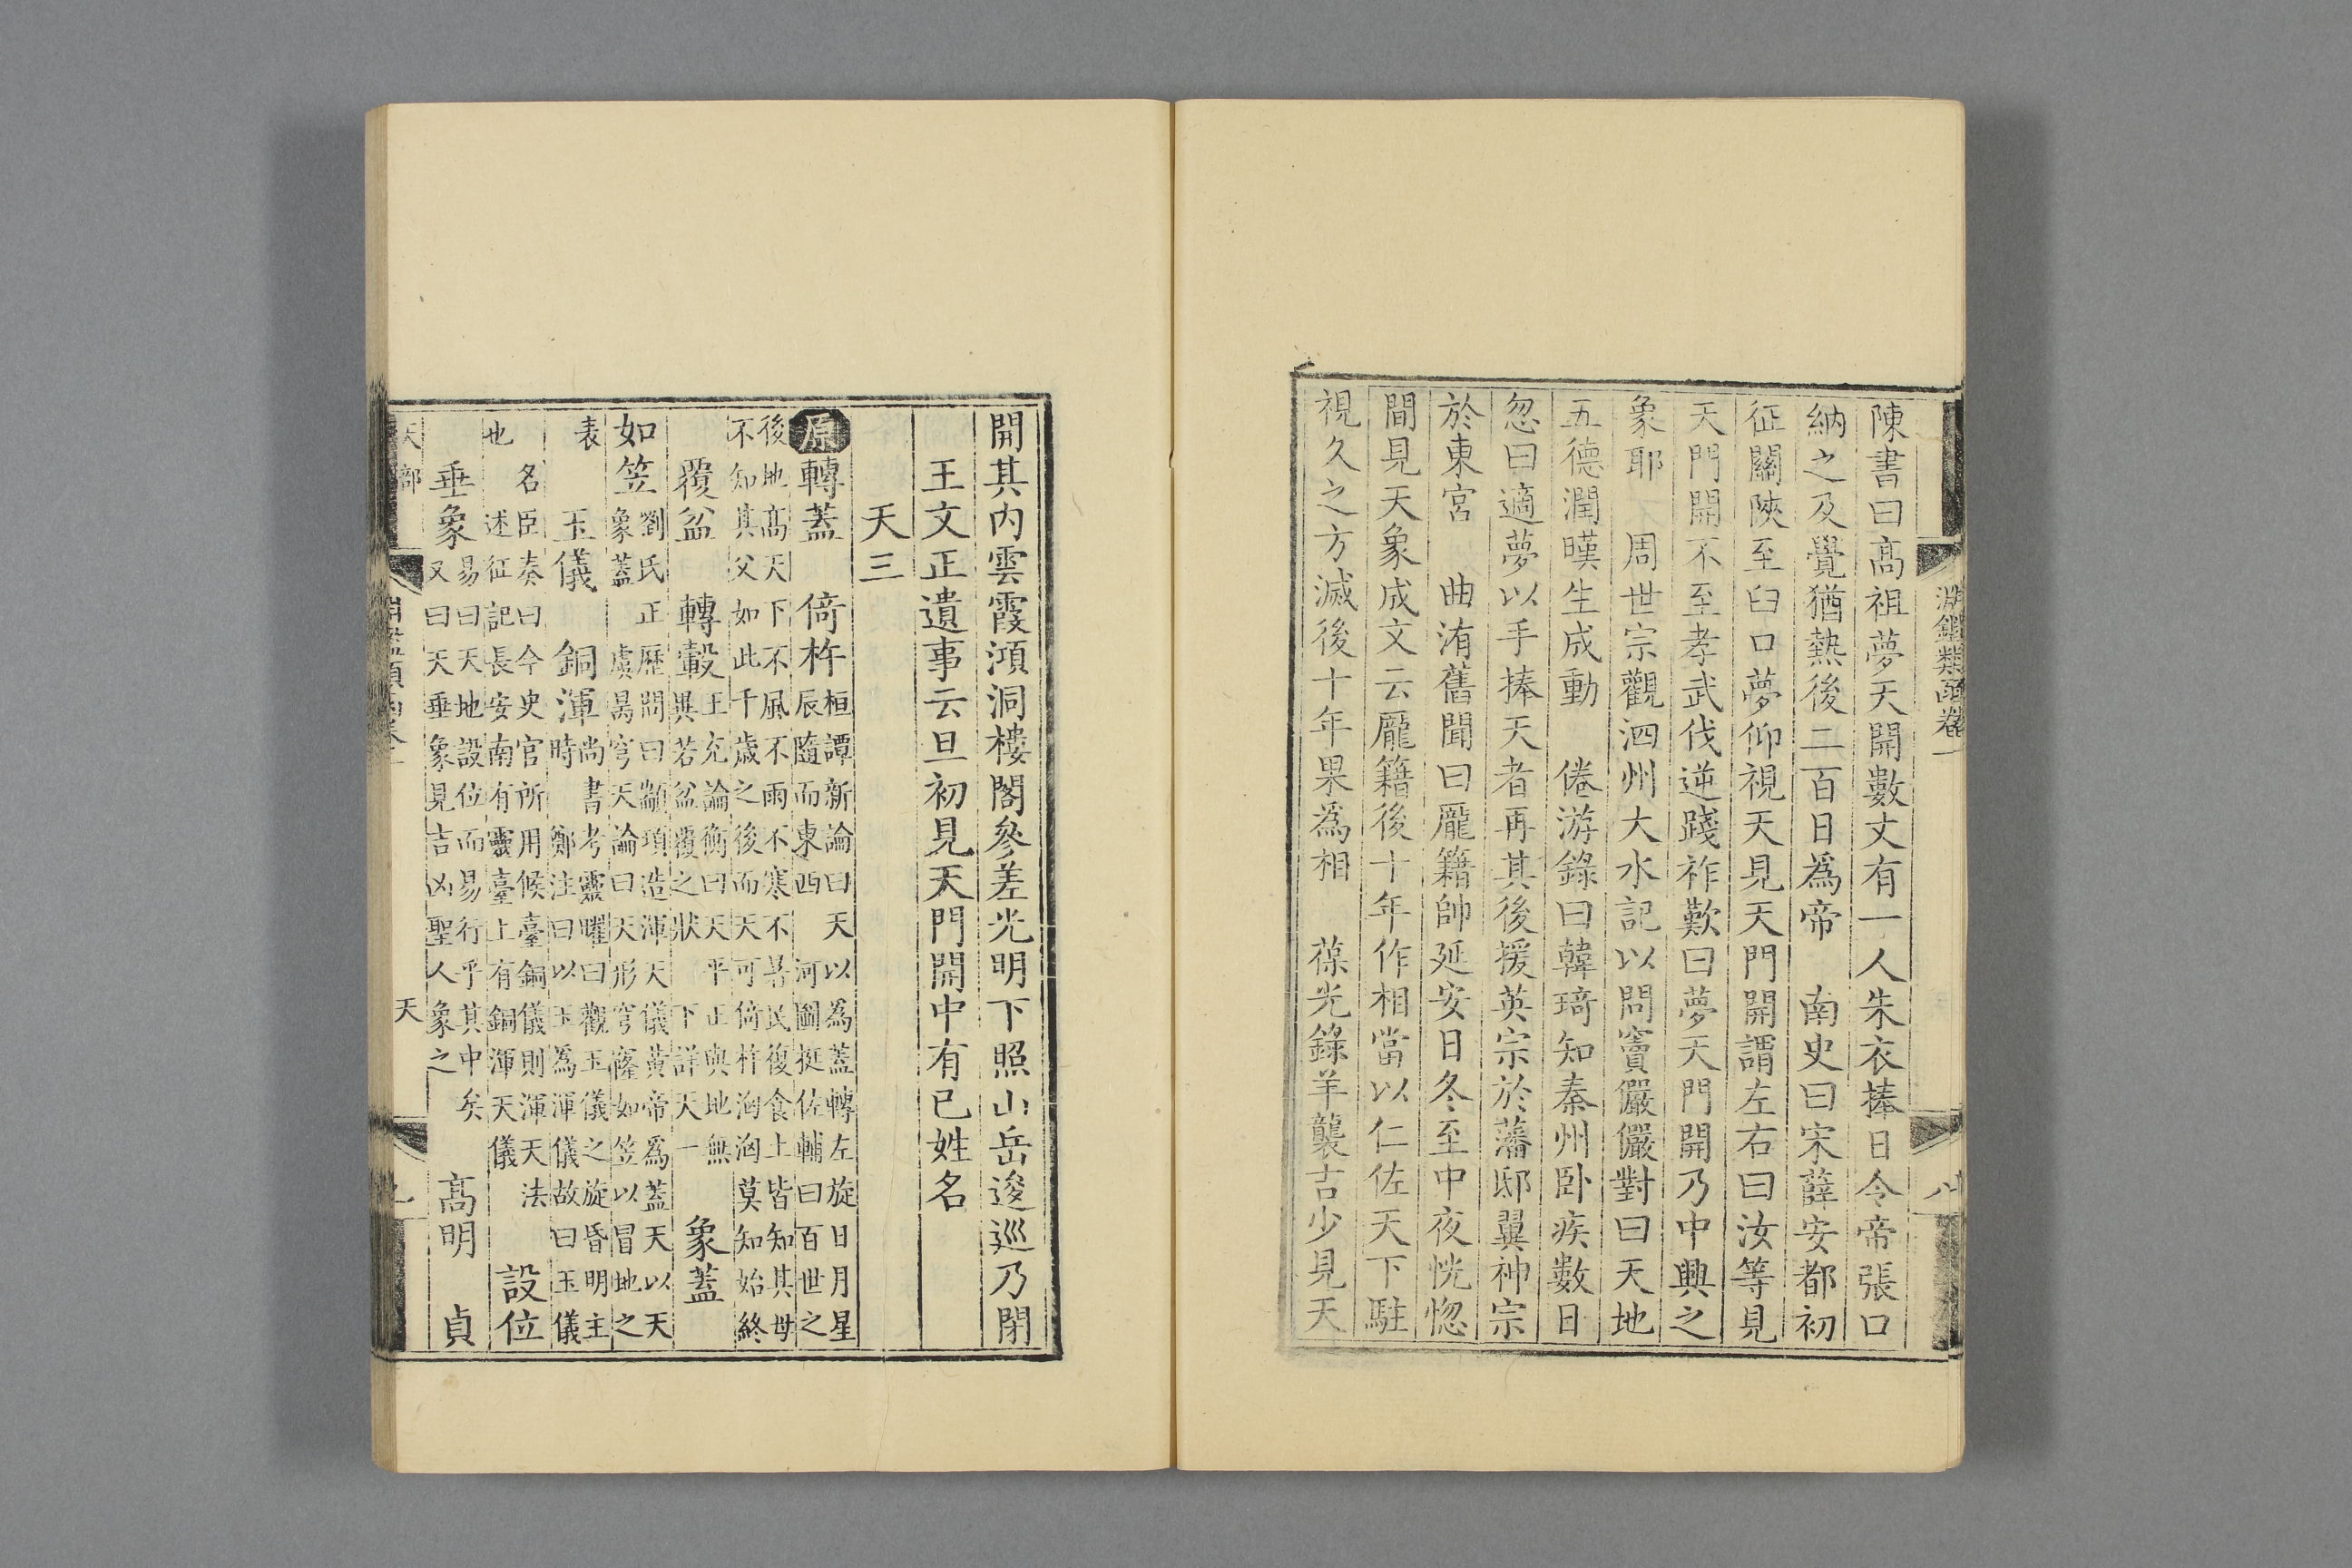 淵鑑類函卷一
八
陳書曰高祖夢天開數丈有一人朱衣捧日令帝張口
納之及覺猶熱後二百日爲帝　南史曰宋薛安都初
征關陝至臼口夢仰視天見天門開謂左右曰汝等見
天門開不至孝武伐逆踐祚歎曰夢天門開乃中興之
象耶　周世宗觀泗州大水記以問竇儼儼對曰天地
五德潤暵生成動　倦游錄曰韓琦知秦州卧疾數日
忽曰適夢以手捧天者再其後援英宗於藩邸翼神宗
於東宮　曲洧舊聞曰龎籍帥延安日冬至中夜恍惚
間見天象成文云龎籍後十年作相當以仁佐天下駐
視久之方滅後十年果爲相　葆光錄羊襲吉少見天
開其内雲霞澒洞樓閣參差光明下照山岳逡巡乃閉
王文正遺事云旦初見天門開中有已姓名
天三
原轉蓋　倚杵桓譚新論曰天以為蓋轉左旋日月星
辰隨而東西　河圖挺佐輔曰百世之
後地高天下不風不雨不寒不暑民復食土皆知其母
不知其父如此千歲之後而天可倚杵洶洶莫知始終
覆盆　轉轂王充論衡曰天平正與地無
異若盆覆之狀　下詳天一　象蓋
如笠劉氏正歷問曰顓頊造渾天儀黃帝為蓋天以天
象蓋　虞昺穹天論曰天形穹窿如笠以冒地之
表　玉儀　銅渾尚書考靈曜曰觀玉儀之旋昏明主
時　鄭注曰以玉為渾儀故曰玉儀
也　名臣奏曰今史官所用候臺銅儀則渾天法
述征記長安南有靈臺上有銅渾天儀　設位
垂象易曰天地設位而易行乎其中矣
又曰天垂象見吉凶聖人象之　高明　貞
天部
天